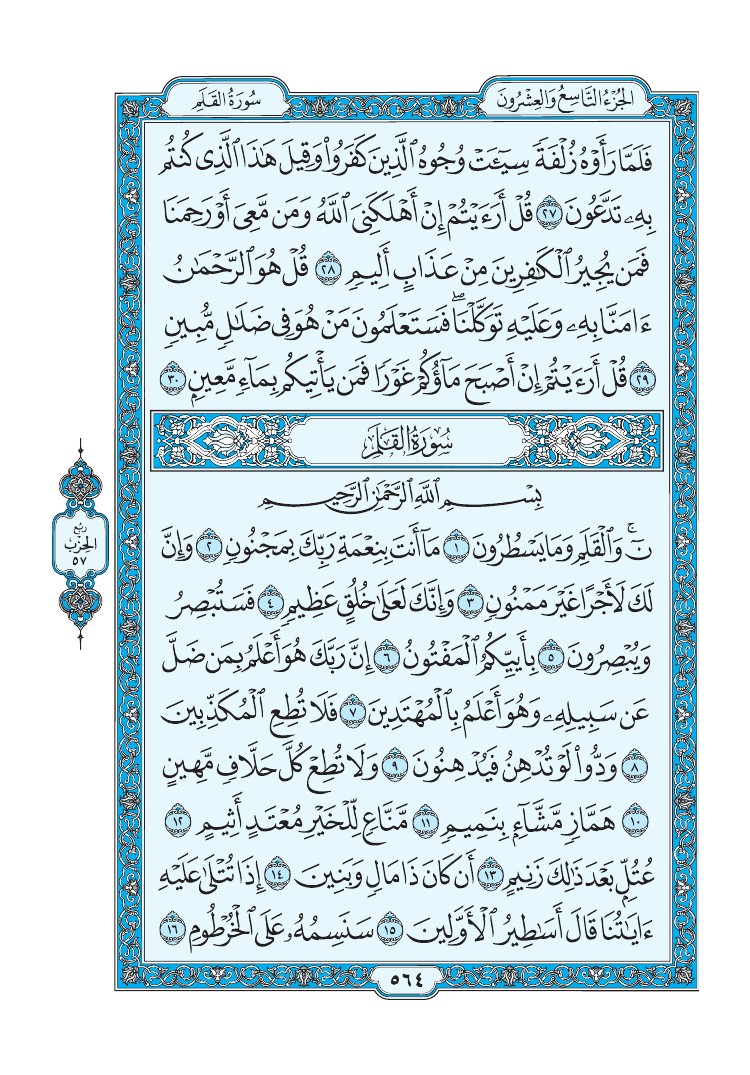 الجُزْءُ التَّاسِعُ وَالعِشْرُونَ
سُورَةُ القَلَمِ
فَلَمَّا رَأَوْهُ زُلْفَةً سِيٓـَٔتْ وُجُوهُ ٱلَّذِينَ كَفَرُوا۟ وَقِيلَ هَٰذَا ٱلَّذِى كُنتُم
بِهِۦ تَدَّعُونَ ٢٧ قُلْ أَرَءَيْتُمْ إِنْ أَهْلَكَنِىَ ٱللَّهُ وَمَن مَّعِىَ أَوْ رَحِمَنَا
فَمَن يُجِيرُ ٱلْكَٰفِرِينَ مِنْ عَذَابٍ أَلِيمٍ ٢٨ قُلْ هُوَ ٱلرَّحْمَٰنُ
ءَامَنَّا بِهِۦ وَعَلَيْهِ تَوَكَّلْنَا ۖ فَسَتَعْلَمُونَ مَنْ هُوَ فِى ضَلَٰلٍ مُّبِينٍ
٢٩ قُلْ أَرَءَيْتُمْ إِنْ أَصْبَحَ مَآؤُكُمْ غَوْرًا فَمَن يَأْتِيكُم بِمَآءٍ مَّعِينٍۭ ٣٠
سُورَةُ القَلَمِ
بِسْمِ ٱللَّهِ ٱلرَّحْمَٰنِ ٱلرَّحِيمِ
نٓ ۚ وَٱلْقَلَمِ وَمَا يَسْطُرُونَ ١ مَآ أَنتَ بِنِعْمَةِ رَبِّكَ بِمَجْنُونٍ ٢ وَإِنَّ
لَكَ لَأَجْرًا غَيْرَ مَمْنُونٍ ٣ وَإِنَّكَ لَعَلَىٰ خُلُقٍ عَظِيمٍ ٤ فَسَتُبْصِرُ
وَيُبْصِرُونَ ٥ بِأَييِّكُمُ ٱلْمَفْتُونُ ٦ إِنَّ رَبَّكَ هُوَ أَعْلَمُ بِمَن ضَلَّ
عَن سَبِيلِهِۦ وَهُوَ أَعْلَمُ بِٱلْمُهْتَدِينَ ٧ فَلَا تُطِعِ ٱلْمُكَذِّبِينَ
٨ وَدُّوا۟ لَوْ تُدْهِنُ فَيُدْهِنُونَ ٩ وَلَا تُطِعْ كُلَّ حَلَّافٍ مَّهِينٍ
١٠ هَمَّازٍ مَّشَّآءٍۭ بِنَمِيمٍ ١١ مَّنَّاعٍ لِّلْخَيْرِ مُعْتَدٍ أَثِيمٍ ١٢
عُتُلٍّۭ بَعْدَ ذَٰلِكَ زَنِيمٍ ١٣ أَن كَانَ ذَا مَالٍ وَبَنِينَ ١٤ إِذَا تُتْلَىٰ عَلَيْهِ
ءَايَٰتُنَا قَالَ أَسَٰطِيرُ ٱلْأَوَّلِينَ ١٥ سَنَسِمُهُۥ عَلَى ٱلْخُرْطُومِ ١٦
ربع
الحزب
٥٧
٥٦٤